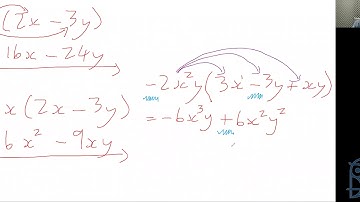 (2x - 3y)
16x - 24y
x(2x - 3y)
6x² - 9xy
-2x²y(3x - 3y + xy)
= -6x³y + 6x²y²